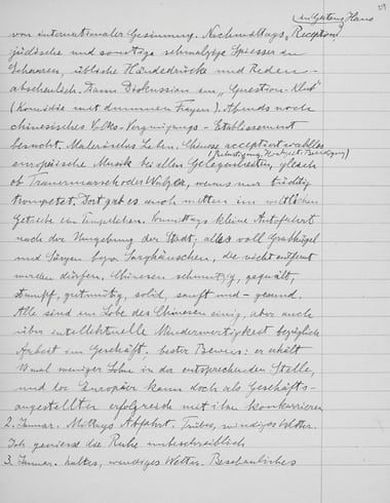 29
(im Gartons Haus
von internationaler Gesinnung. Nachmittags „Reception"
jüdische und sonstige schmalzige Spiesser in
Scharen, übliche Händedrücke und Reden –
abscheulich. Dann Diskussion im „Question-Klub"
(Komödie mit dummen Fragen). Abends noch
chinesisches Volks-Vergnügungs-Etablissement
besucht. Malerisches Leben. Chinese acceptiert wahllos
europäische Musik bei allen Gelegenheiten, gleich
(Beerdigung, Hochzeit,
ob Trauermarsch oder Walzer, wenns nur tüchtig
trompetet. Dort gab es auch mitten im weltlichen
Getriebe ein Tempelchen. Vormittags kleine Autofahrt
nach der Umgebung der Stadt, alles voll Grabhügel
und Särgen bezw Sarghäuschen, die nicht entfernt
werden dürfen. Chinesen schmutzig, gequält,
stumpf, gutmütig, solid, sanft und – gesund.
Alle sind im Lobe des Chinesen einig, aber auch
über intellektuelle Minderwertigkeit bezüglich
Arbeit im Geschäft, bester Beweis: er erhält
10 mal weniger Lohn in der entsprechenden Stelle,
und der Europäer kann doch als Geschäfts-
angestellter erfolgreich mit ihm konkurrieren
2. Januar. Mittags Abfahrt. Trübes, windiges Wetter.
Ich geniesse die Ruhe unbeschreiblich
3. Januar. kaltes, windiges Wetter. Beschauliches